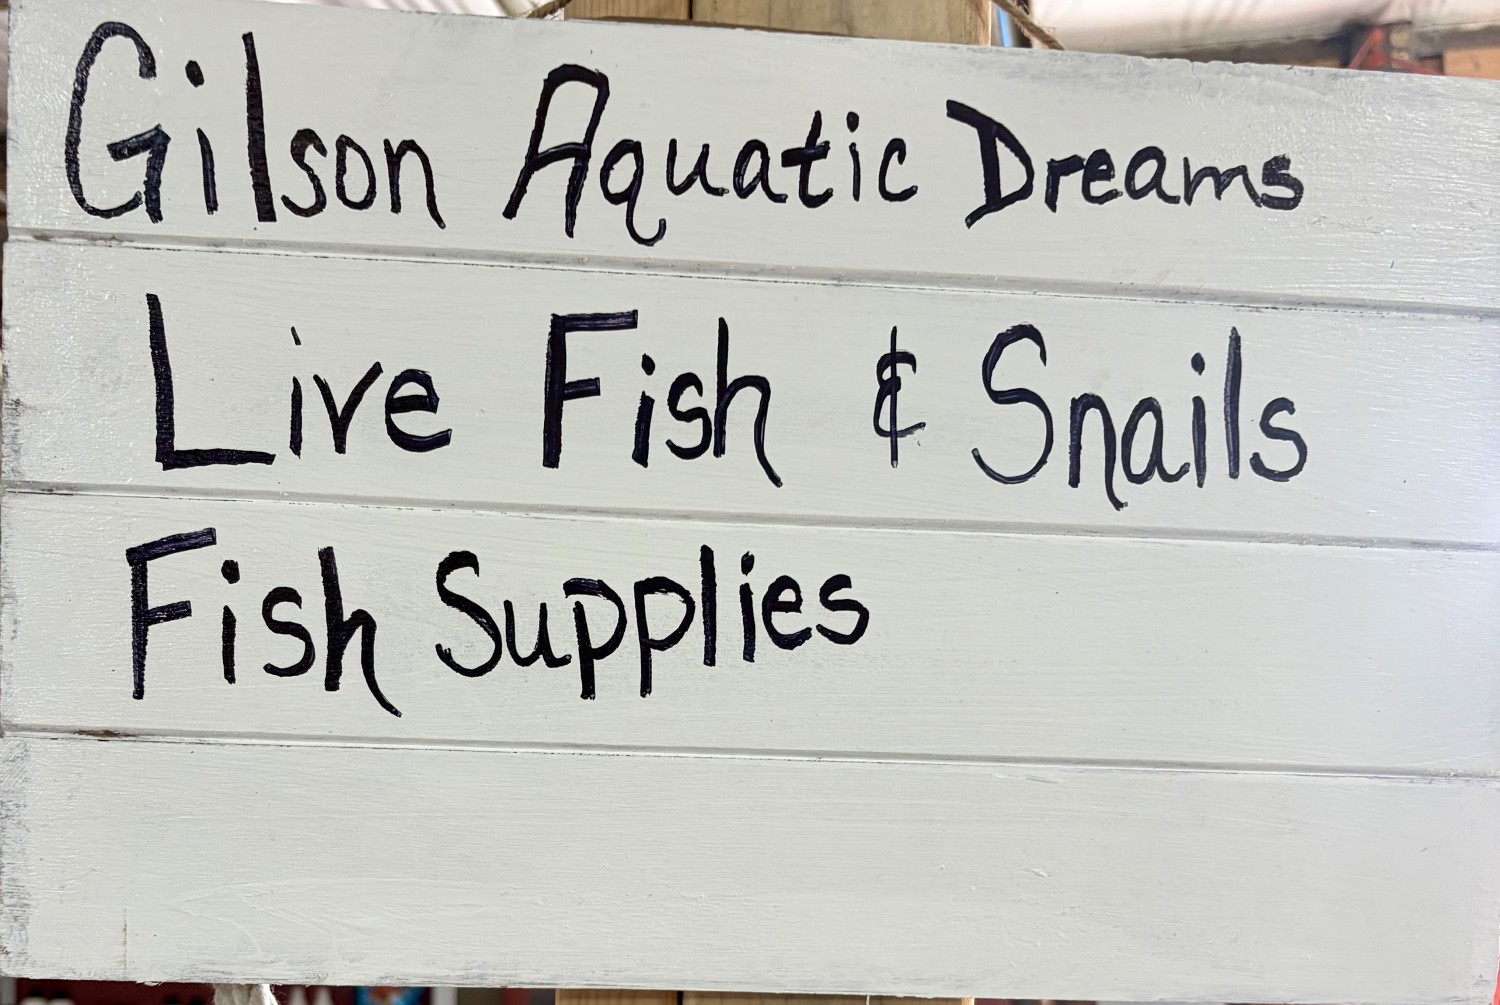 Gilson Aquatic Dreams
Live Fish & Snails
Fish Supplies